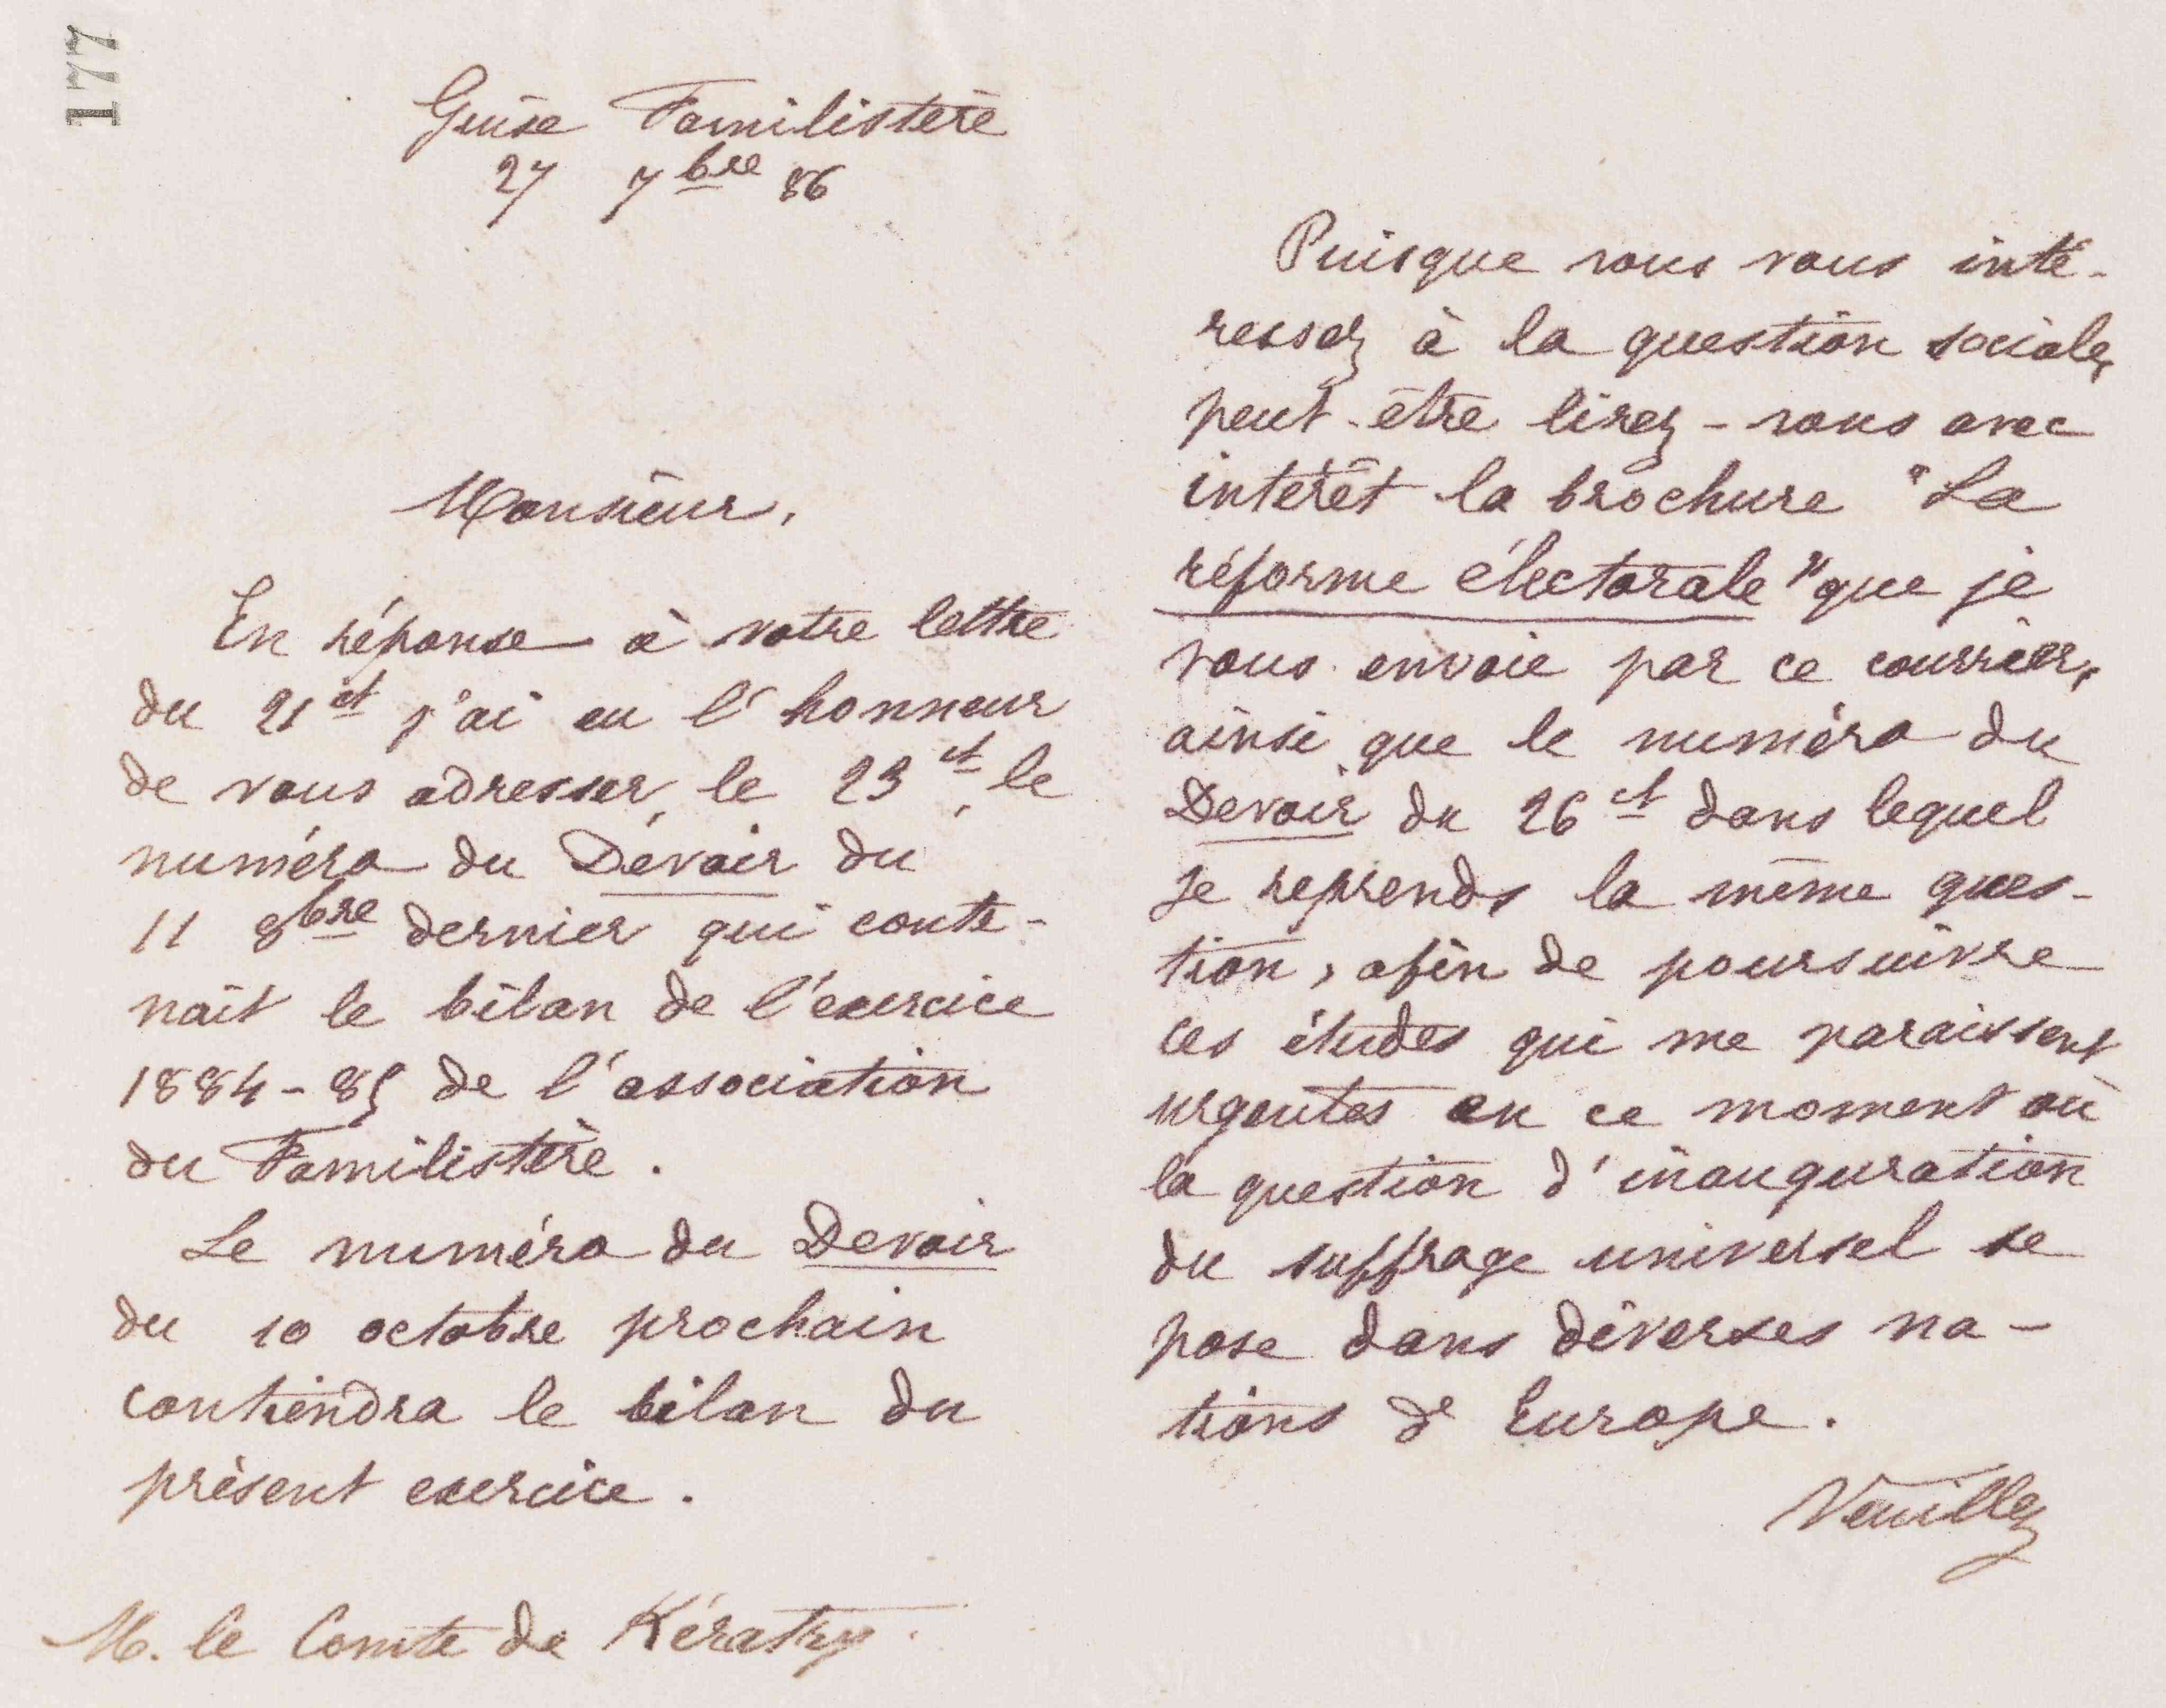 177
Guise Familistère
27 7bre 86
Monsieur,
En réponse à votre lettre
du 21 ct j'ai eu l'honneur
de vous adresser, le 23 ct, le
numéro du Devoir du
11 8bre dernier qui conte-
nait le bilan de l'exercice
1884-85 de l'association
du Familistère.
Le numéro du Devoir
du 10 octobre prochain
contiendra le bilan du
présent exercice.
M. le Comte de Kératry.
Puisque vous vous inté-
ressez à la question sociale,
peut-être lirez-vous avec
intérêt la brochure "La
réforme électorale" que je
vous envoie par ce courrier,
ainsi que le numéro du
Devoir du 26 ct dans lequel
je reprends la même ques-
tion, afin de poursuivre
ces études qui me paraissent
urgentes en ce moment où
la question d'inauguration
du suffrage universel se
pose dans diverses na-
tions d'Europe.
Veuillez